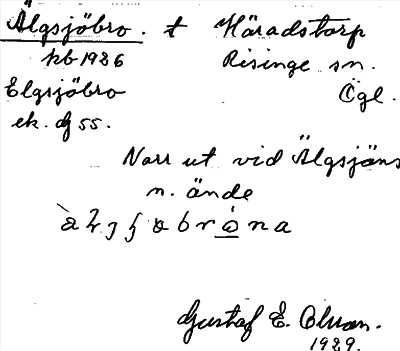 Älgsjöbro. t Häradstorp
hb 1926 Risinge sn.
Elgsjöbro Ögl.
ek. bl 55.
Norr ut vid Älgsjöns
n. ände
Gustaf E. Olsson.
1929.